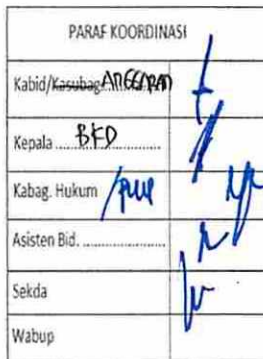 PARAF KOORDINASI
Kabid/Kasubag ANGGARAN
Kepala ........ BKD
Kabag. Hukum
Asisten Bid. ......................
Sekda
Wabup